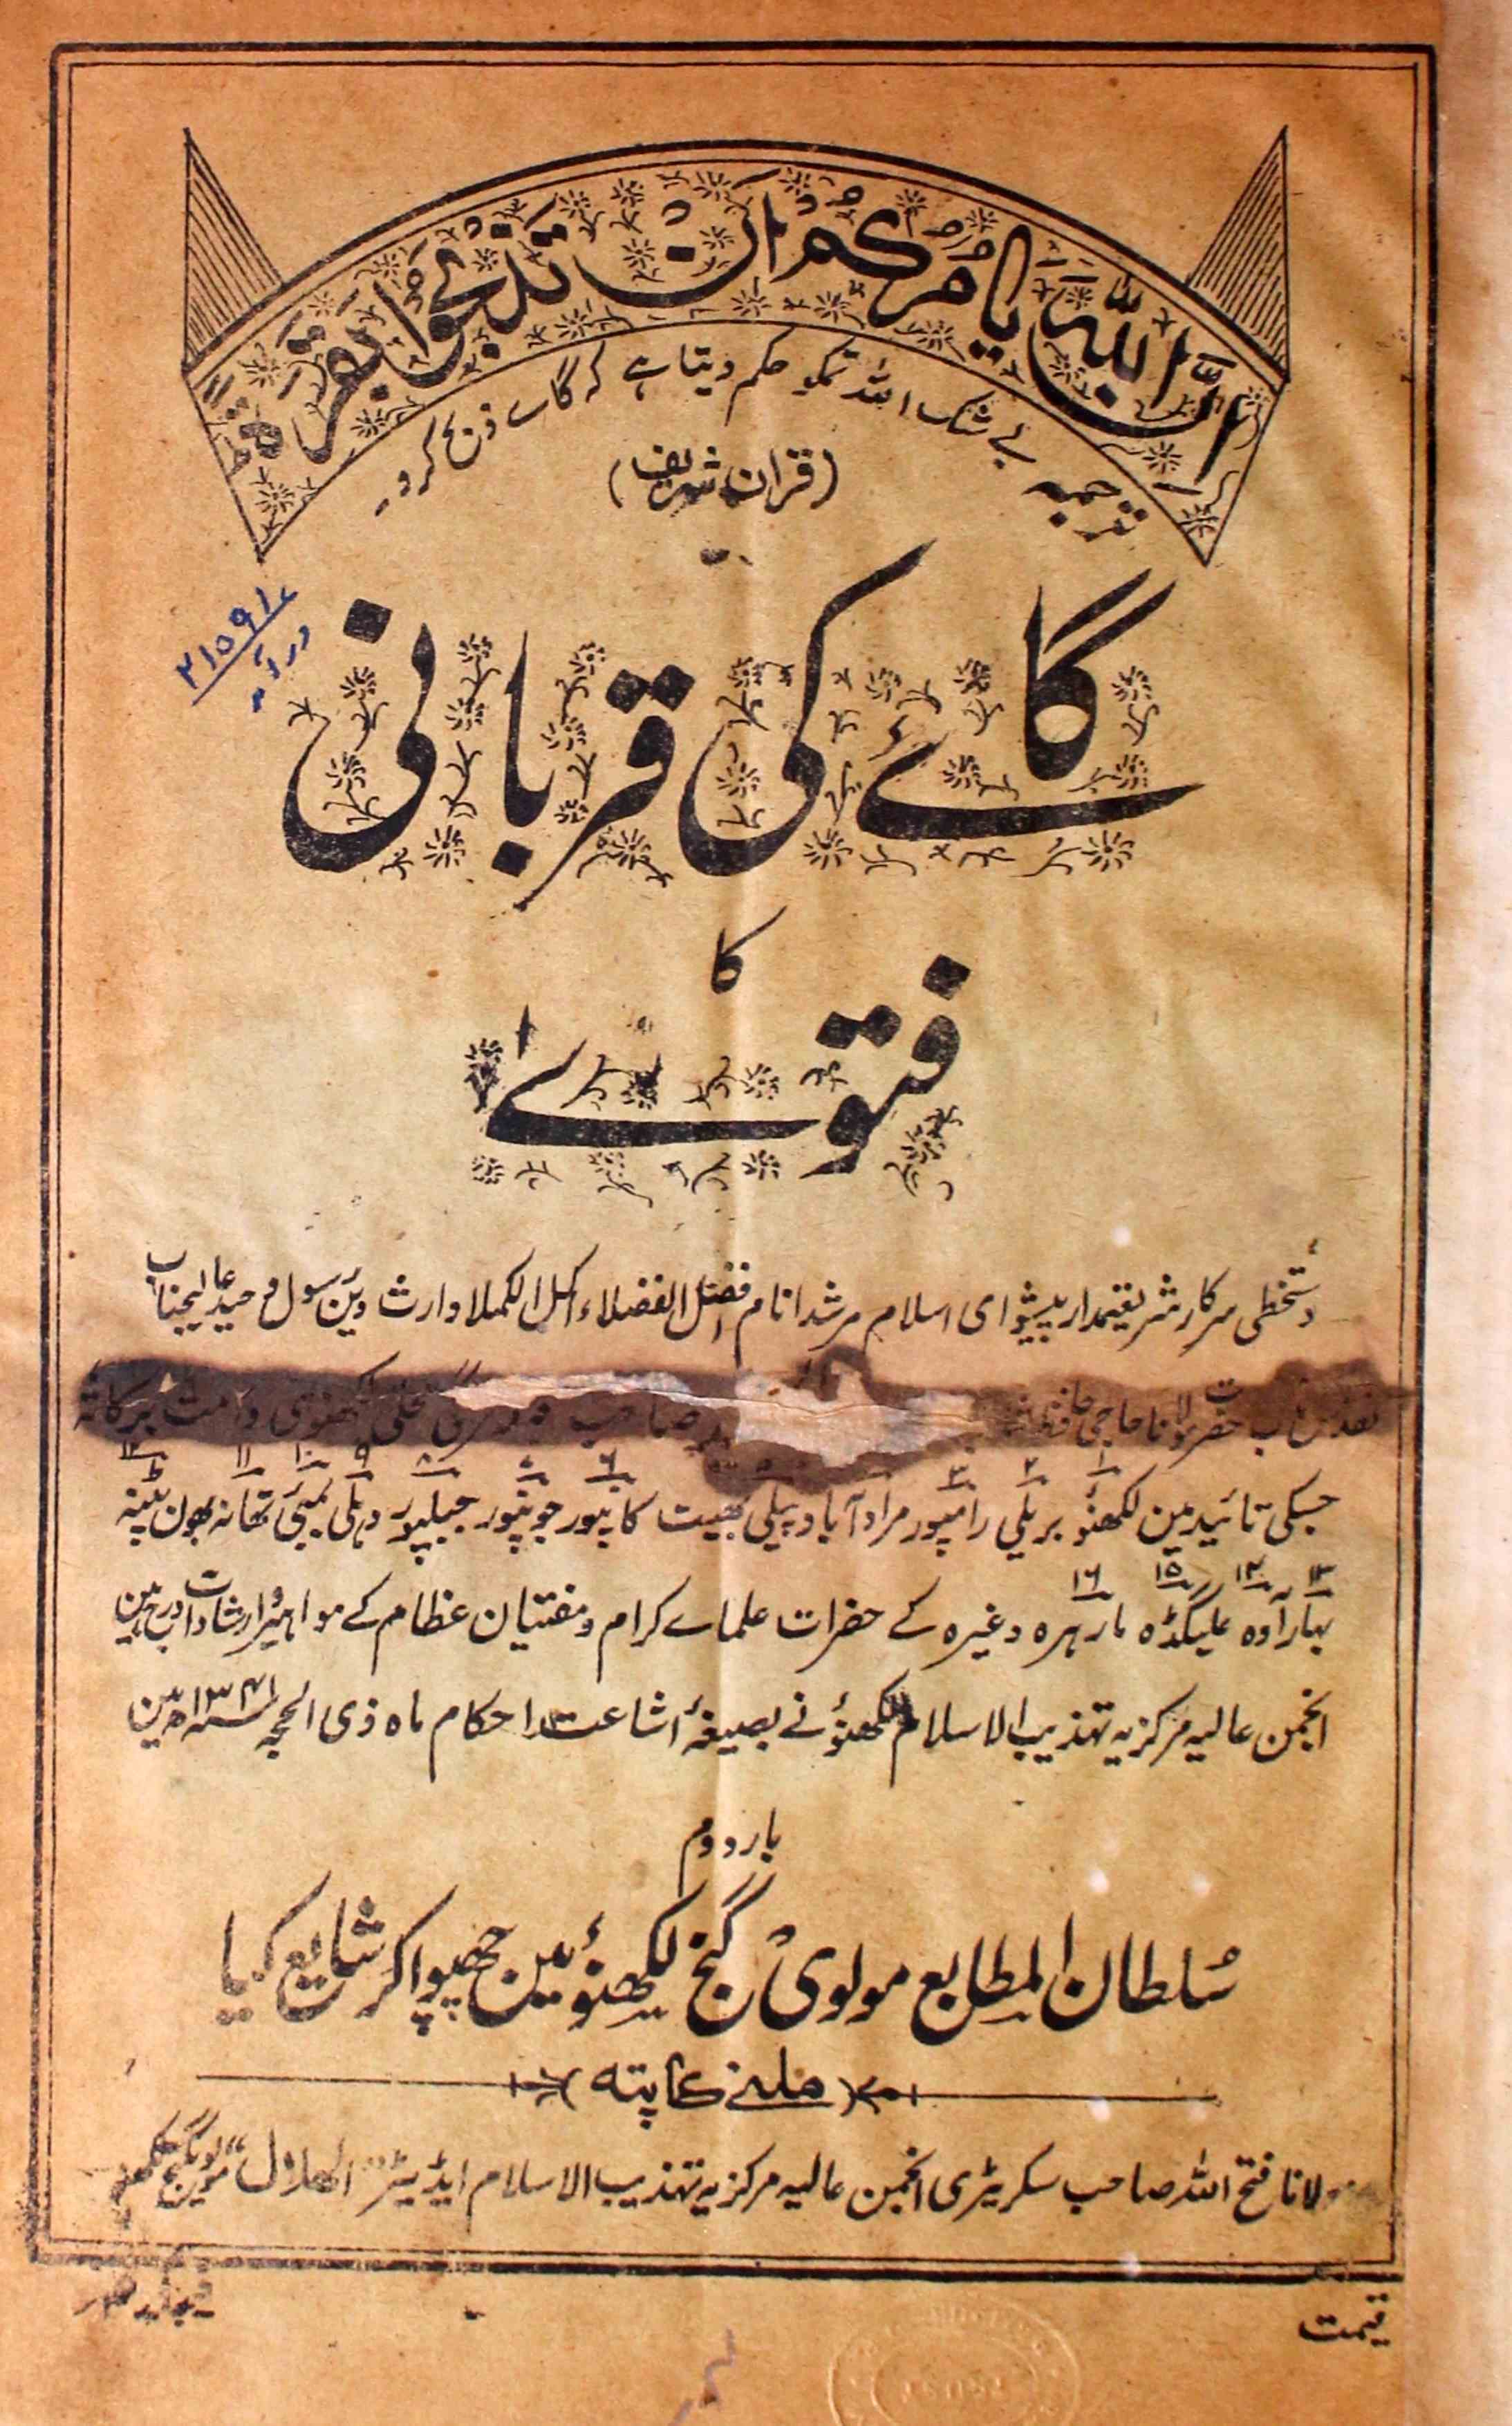 اِنَّ اللّٰہَ یَامُرُکُمْ اَنْ تَذْبَحُوا بَقَرَۃً
ترجمہ
بے شک اللہ تمکو حکم دیتا ہے کہ گاے ذبح کرو۔
(قران شریف)
گائے کی قربانی
کا
فتوے
۲۱۵۹۱
دستخطی سرکار شریعتمدار پیشوای اسلام مرشد انام افضل الفضلاء اکمل الکملا وارث دین رسول وحید عالیجناب
حضرت مولانا حاجی حافظ صاحب فرنگی محلی لکھنوی دامت برکاتہ
جسکی تائید مین لکھنؤ بریلی رامپور مرادآباد پیلی بھیت کانپور جونپور جبلپور دہلی بمبئی تھانہ بھون پٹنہ
۱ ۲ ۳ ۵ ۶ ۸ ۹ ۱۰ ۱۱ ۱۲
بہار آرہ علیگڈہ مارہرہ وغیرہ کے حضرات علماے کرام ومفتیان عظام کے مواہیر ارشادات درج ہین
۱۳ ۱۴ ۱۵ ۱۶
انجمن عالیہ مرکزیہ تہذیب الاسلام لکھنؤ نے بصیغۂ اشاعت احکام ماہ ذی الحجہ ۱۳۴۱ھ مین
بار دوم
سلطان المطابع مولوی گنج لکھنؤ مین چھپوا کر شایع کیا
(ملنے کا پتہ)
مولانا فتح اللہ صاحب سکریٹری انجمن عالیہ مرکزیہ تہذیب الاسلام ایڈیٹر "الھلال" مولویگنج لکھنؤ
قیمت